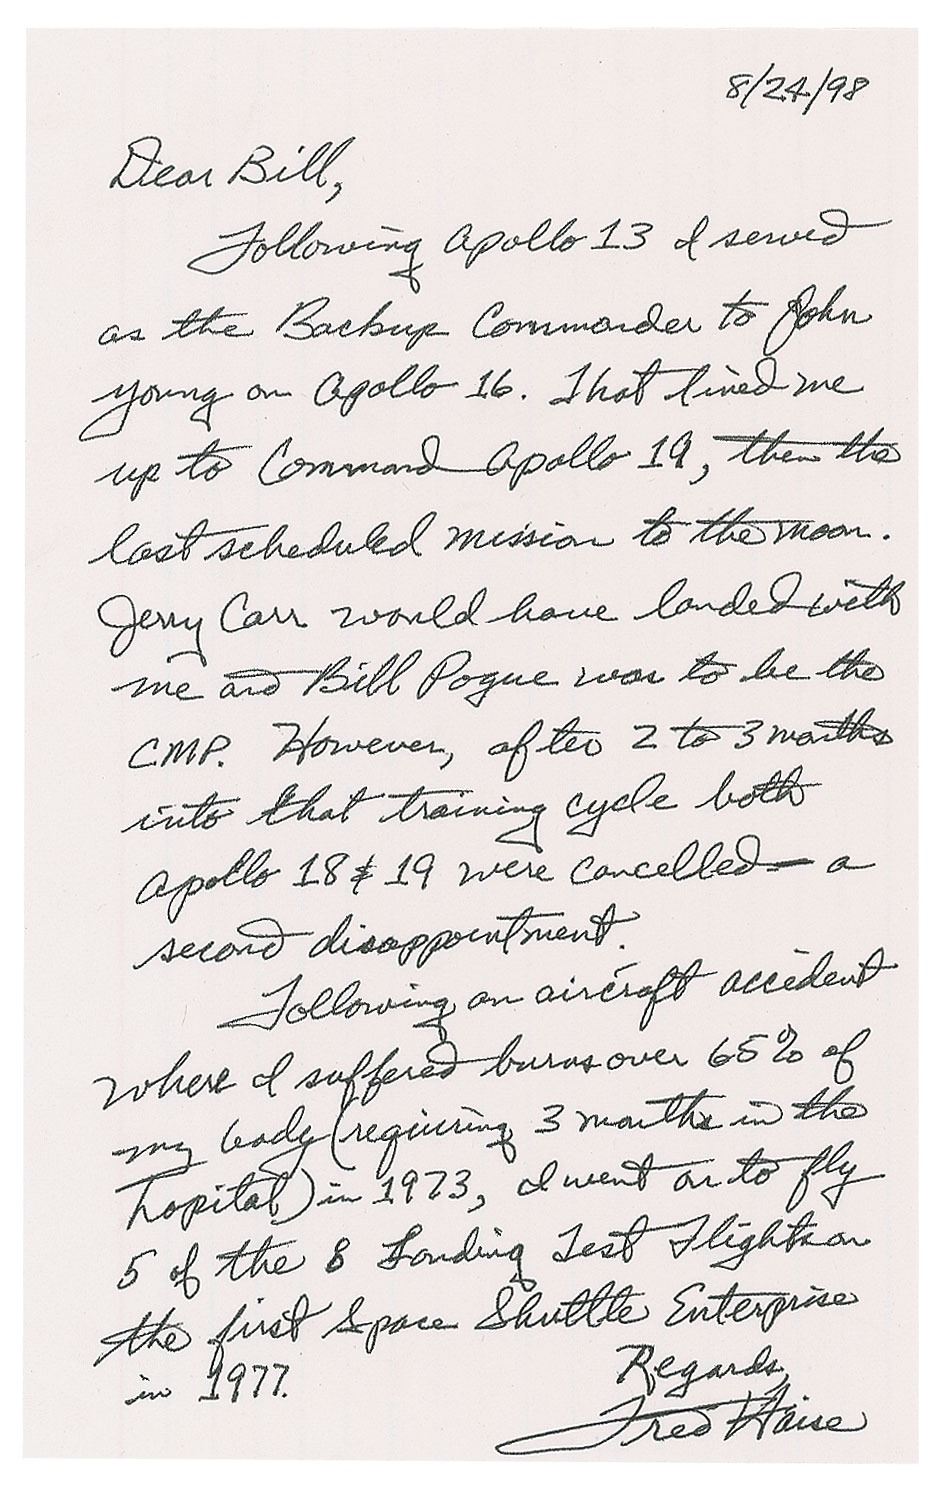 8/24/98
Dear Bill,
Following Apollo 13 I served
as the Backup Commander to John
Young on Apollo 16. That lined me
up to Command Apollo 19, then the
last scheduled mission to the moon.
Jerry Carr would have landed with
me and Bill Pogue was to be the
CMP. However, after 2 to 3 months
into that training cycle both
Apollo 18 & 19 were cancelled — a
second disappointment.
Following an aircraft accident
where I suffered burns over 65% of
my body (requiring 3 months in the
hopital) in 1973, I went on to fly
5 of the 8 Landing Test Flights on
the first Space Shuttle Enterprise
in 1977.
Regards,
Fred Haise